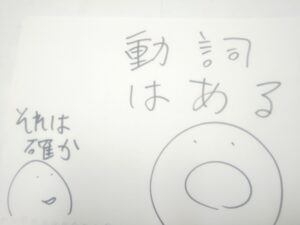 動詞
はある
それは
確か